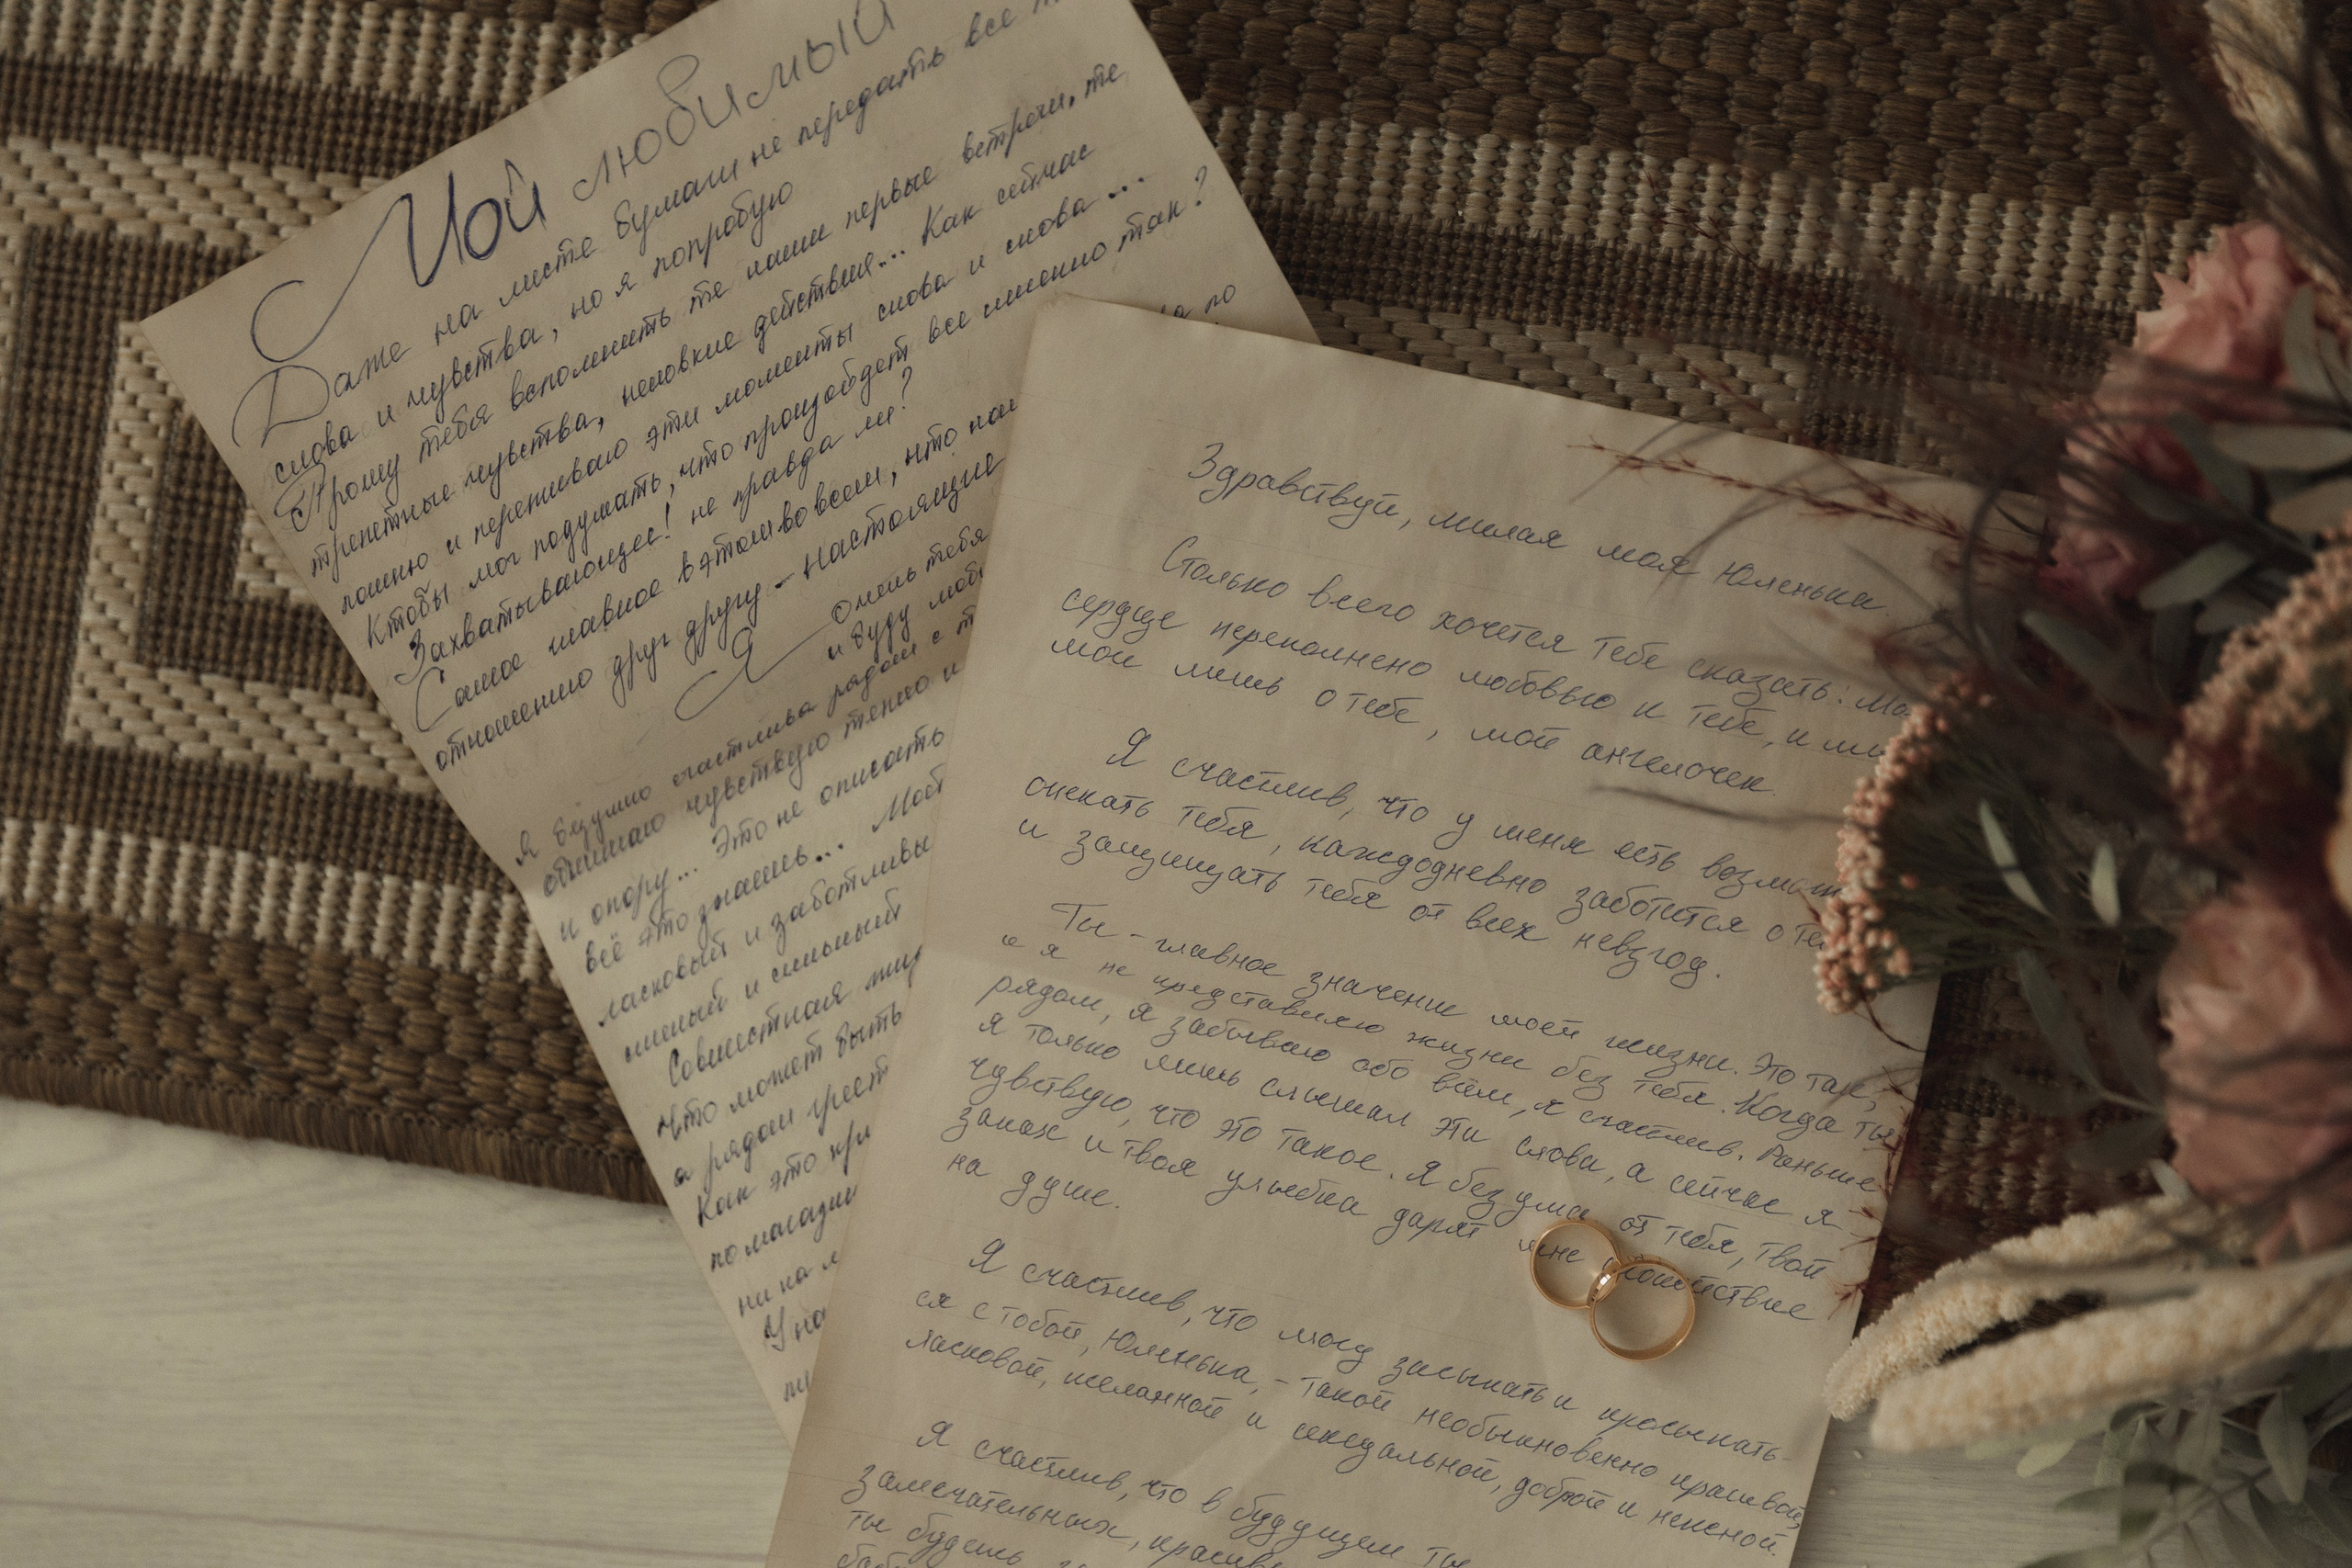 Мой любимый
Даже на листе бумаги не передать все
слова и чувства, но я попробую
Прошу тебя вспомнить те наши первые встречи, те
трепетные чувства, неловкие действия... Как сейчас
помню и переживаю эти моменты снова и снова...
Ктобы мог подумать, что произойдет все именно так?
Захватывающее! не правда ли?
по
Самое главное в этом во всем, что
отношению друг другу - настоящие
Я очень тебя
и буду
Я безумно счастлива рядом с
обнимаю чувствую тепло и
и опору... Это не описать
всё это знаешь... Мой
ласковый и заботливы
нежный и сильный
Совместная
Что может быть
а рядом
Как это
по магазин
ни на
Здравствуй, милая моя Юленька
Столько всего хочется тебе сказать: Мо
сердце переполнено любовью к тебе, и мы
мои лишь о тебе, мой ангелочек.
Я счастлив, что у меня есть возмож
опекать тебя, каждодневно заботится о те
и защищать тебя от всех невзгод.
Ты - главное значение моей жизни. Это так,
и я не представляю жизни без тебя. Когда ты
рядом, я забываю обо всём, я счастлив. Раньше
я только лишь слышал эти слова, а сейчас я
чувствую, что это такое. Я без ума от тебя, твой
запах и твоя улыбка дарят мне спокойствие
на душе.
Я счастлив, что могу засыпать и просыпать-
ся с тобой, Юленька, - такой необыкновенно красивой,
ласковой, желанной и сексуальной, доброй и нежной.
Я счастлив, что в будущем ты
замечательных, красив
ты будешь